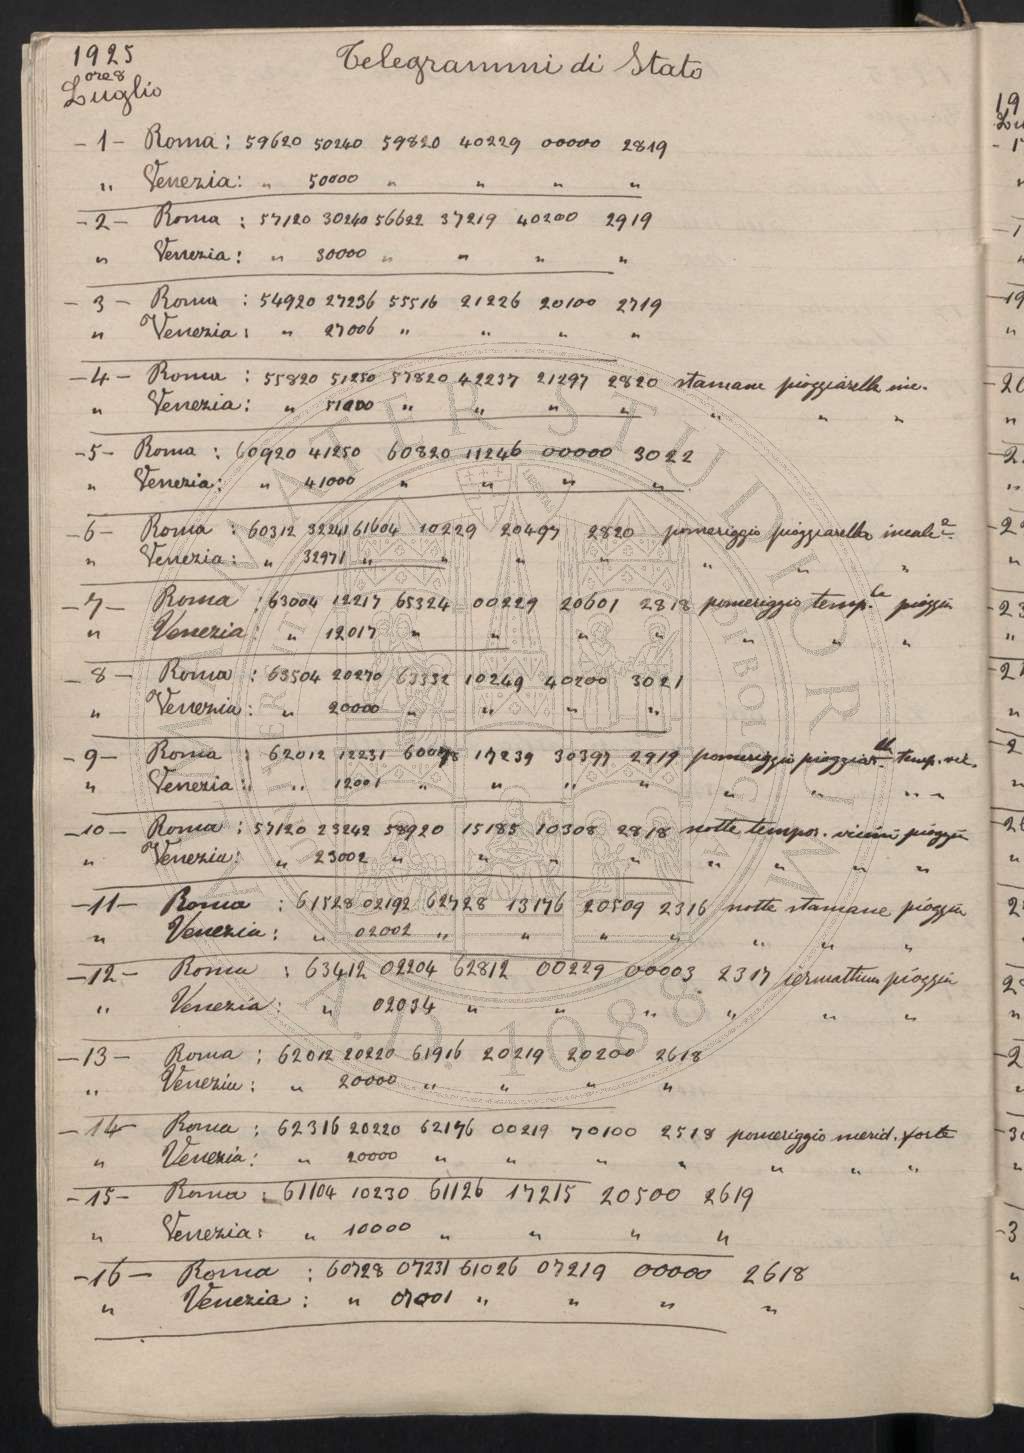 1925
ore 8
Luglio
Telegrammi di Stato
-1- Roma : 59620 50240 59820 40229 00000 2819
" Venezia : " 50000 " " " "
-2- Roma : 57120 30240 56622 37219 40200 2919
" Venezia : " 30000 " " " "
-3- Roma : 54920 27236 55516 21226 20100 2719
" Venezia : " 27006 " " " "
-4- Roma : 55820 51250 57820 42237 21297 2820 stamane pioggiarella inc.
" Venezia : " 51000 " " " " " " "
-5- Roma : 60920 41250 60820 11246 00000 3022
" Venezia : " 41000 " " " "
-6- Roma : 60312 32241 61604 10229 20497 2820 pomeriggio pioggiarella incalc.
" Venezia : " 32971 " " " " " " "
-7- Roma : 63004 12217 65324 00229 20601 2818 pomeriggio temp.le pioggia
" Venezia : " 12017 " " " " " " "
-8- Roma : 63504 20270 63332 10249 40200 3021
" Venezia : " 20000 " " " "
-9- Roma : 62012 12231 17239 30397 2919 pomeriggio temp. vic.
" Venezia : " 12001 " " " " " " " "
-10- Roma : 57120 23242 58920 15185 10308 2818 notte tempor. vicini pioggia
" Venezia : " 23002 " " " " " " " "
-11- Roma : 61528 02192 62728 13176 20509 2316 notte stamane pioggia
" Venezia : " 02002 " " " " " " "
-12- Roma : 63412 02204 62812 00229 00003 2317 iermattina pioggia
" Venezia : " 02034 " " " " " "
-13- Roma : 62012 20220 61916 20219 20200 2618
" Venezia : " 20000 " " " "
-14- Roma : 62316 20220 62176 00219 70100 2518 pomeriggio merid. forte
" Venezia : " 20000 " " " " " " "
-15- Roma : 61104 10230 61126 17215 20500 2619
" Venezia : " 10000 " " " "
-16- Roma : 60728 07231 61026 07219 00000 2618
" Venezia : " 07001 " " " "
ALMA MATER STUDIORUM
A.D. 1088